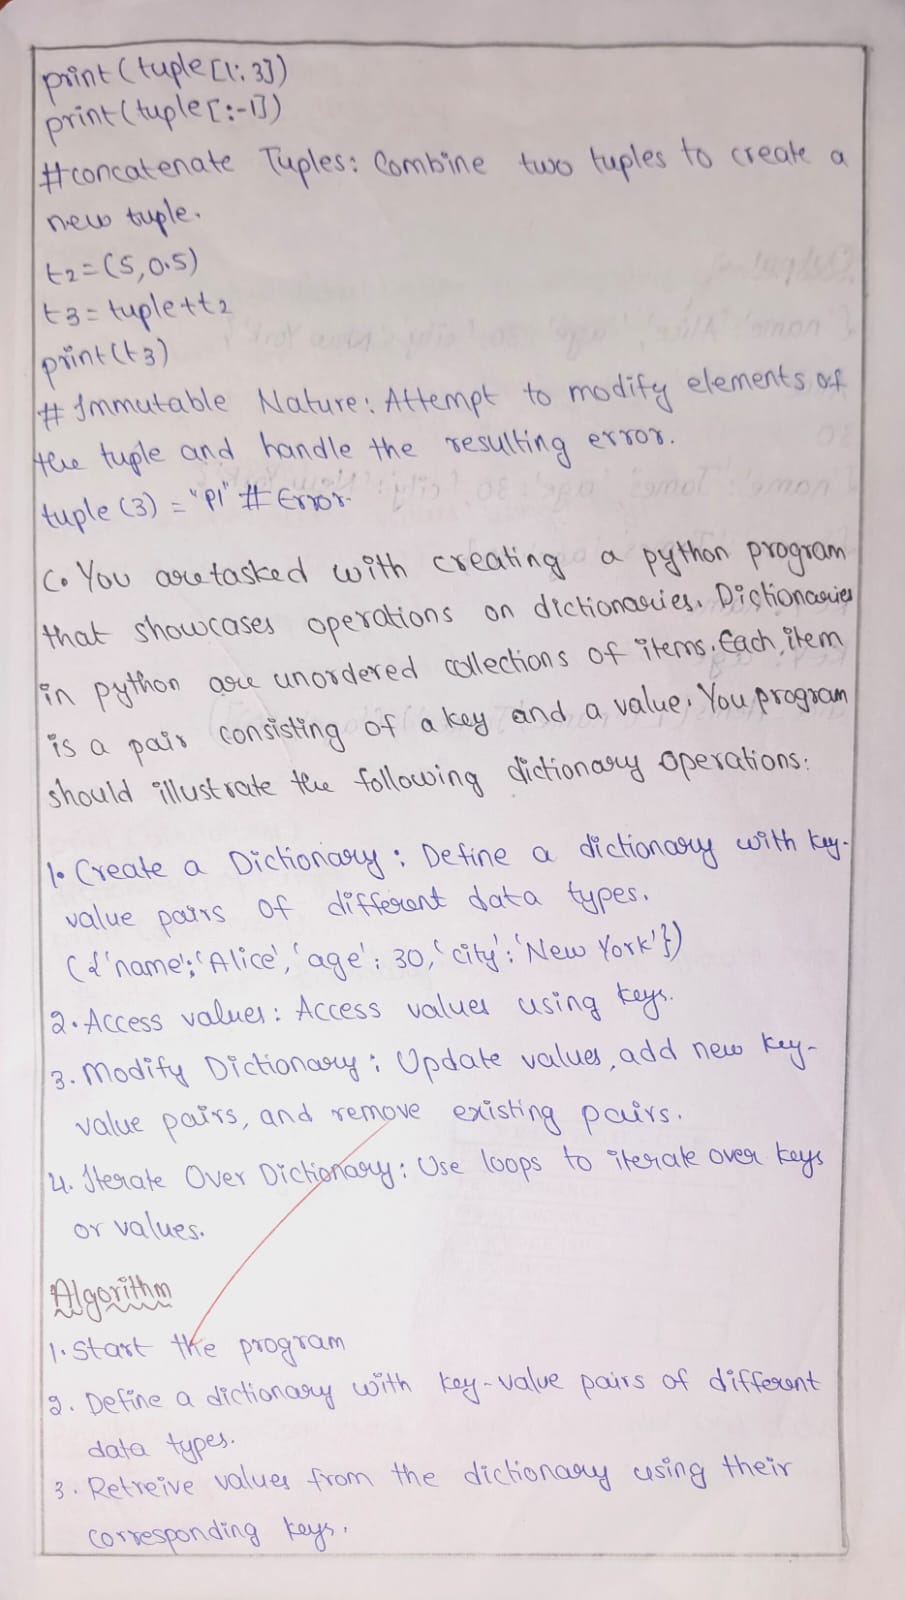 print(tuple[1:3])
print(tuple[:-1])
#concatenate Tuples: Combine two tuples to create a
new tuple.
t2=(5,0.5)
t3=tuple+t2
print(t3)
# Immutable Nature: Attempt to modify elements of
the tuple and handle the resulting error.
tuple(3)="PI" # Error
C. You are tasked with creating a python program
that showcases operations on dictionaries. Dictionaries
in python are unordered collections of items. Each item
is a pair consisting of a key and a value. You program
should illustrate the following dictionary operations:
1. Create a Dictionary: Define a dictionary with key-
value pairs of different data types.
({'name':'Alice','age':30,'city':'New York'})
2. Access values: Access values using keys.
3. Modify Dictionary: Update values, add new key-
value pairs, and remove existing pairs.
4. Iterate Over Dictionary: Use loops to iterate over keys
or values.
Algorithm
1. Start the program
2. Define a dictionary with key-value pairs of different
data types.
3. Retreive values from the dictionary using their
corresponding keys.